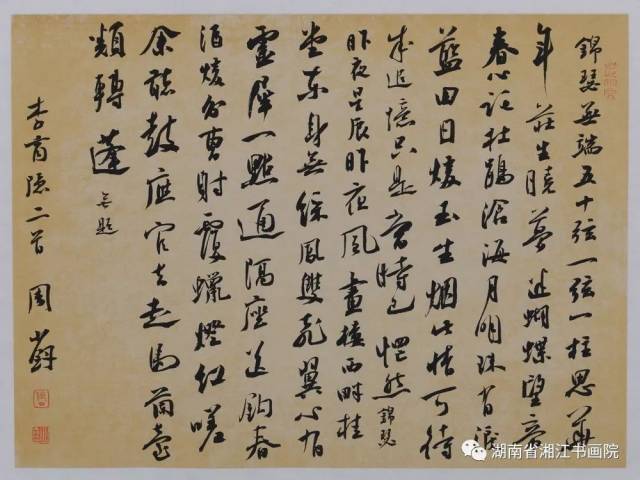 錦瑟無端五十弦一弦一柱思華
年莊生曉夢迷蝴蝶望帝
春心託杜鵑滄海月明珠有淚
藍田日煖玉生烟此情可待
成追憶只是當時已惘然 錦瑟
昨夜星辰昨夜風畫樓西畔桂
堂東身無綵鳳雙飛翼心有
靈犀一點通隔座送鈎春
酒煖分曹射覆蠟燈紅嗟
余聽鼓應官去走馬蘭臺
類轉蓬 無題
李商隱二首 周
湖南省湘江书画院